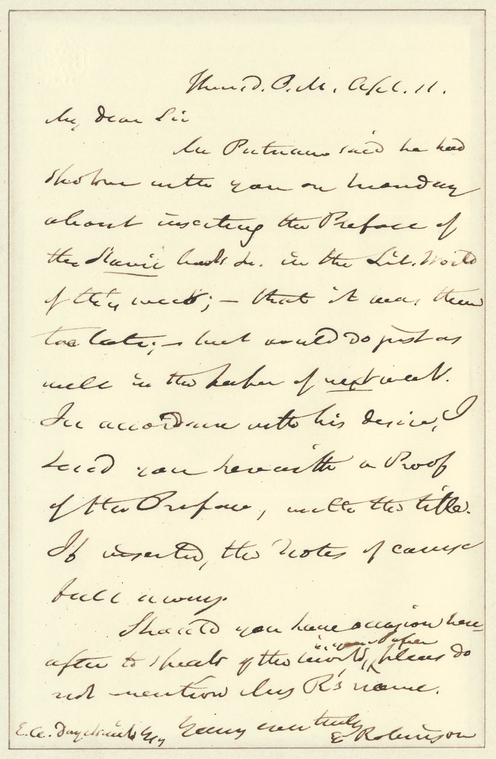 Thursd. P.M. Apl. 11.
My dear Sir
Mr Putnam said he had
spoken with you on Monday
about inserting the Preface of
the Slavic book &c. in the Lit. World
of this week; – that it was then
too late; – but would do just as
well in the paper of next week.
In accordance with his desire, I
send you herewith a Proof
of the Preface, with the title.
If inserted, the Notes of course
fall away.
Should you have occasion here-
after to speak of the work, in your Paper please do
not mention Mrs R's name.
Yours very truly
E Robinson
E. A. Duyckinck Esq